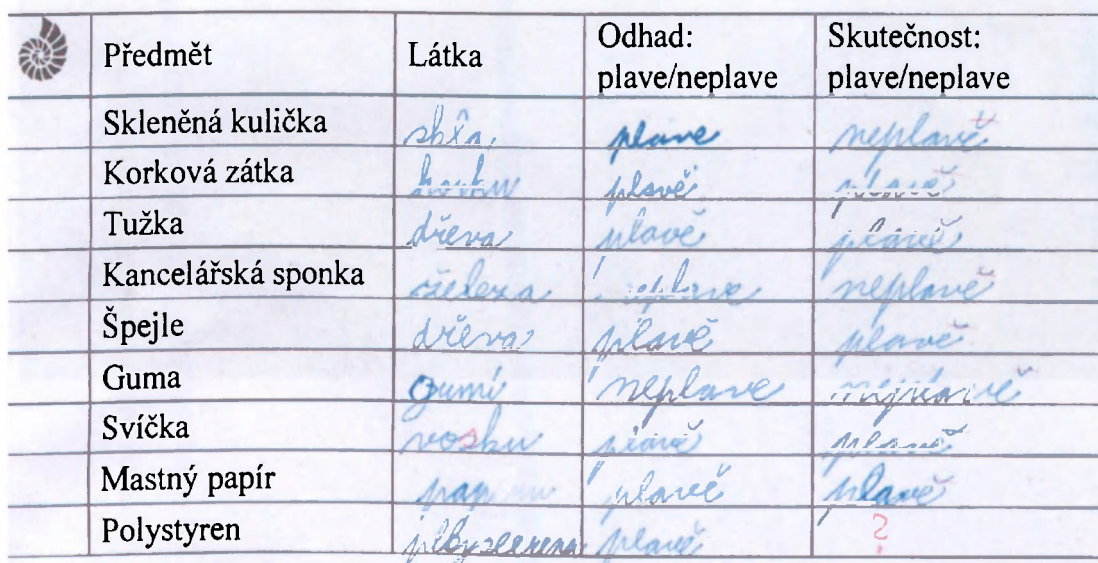 Předmět Látka Odhad: plave/neplave Skutečnost: plave/neplave
Skleněná kulička skla plave neplavě
Korková zátka korku plavě plavě
Tužka dřeva plavě plavě
Kancelářská sponka železa neplave neplavě
Špejle dřeva plavě plavě
Guma gumi neplave neplavě
Svíčka vosku plavě plavě
Mastný papír plavě plavě
Polystyren plavě ?